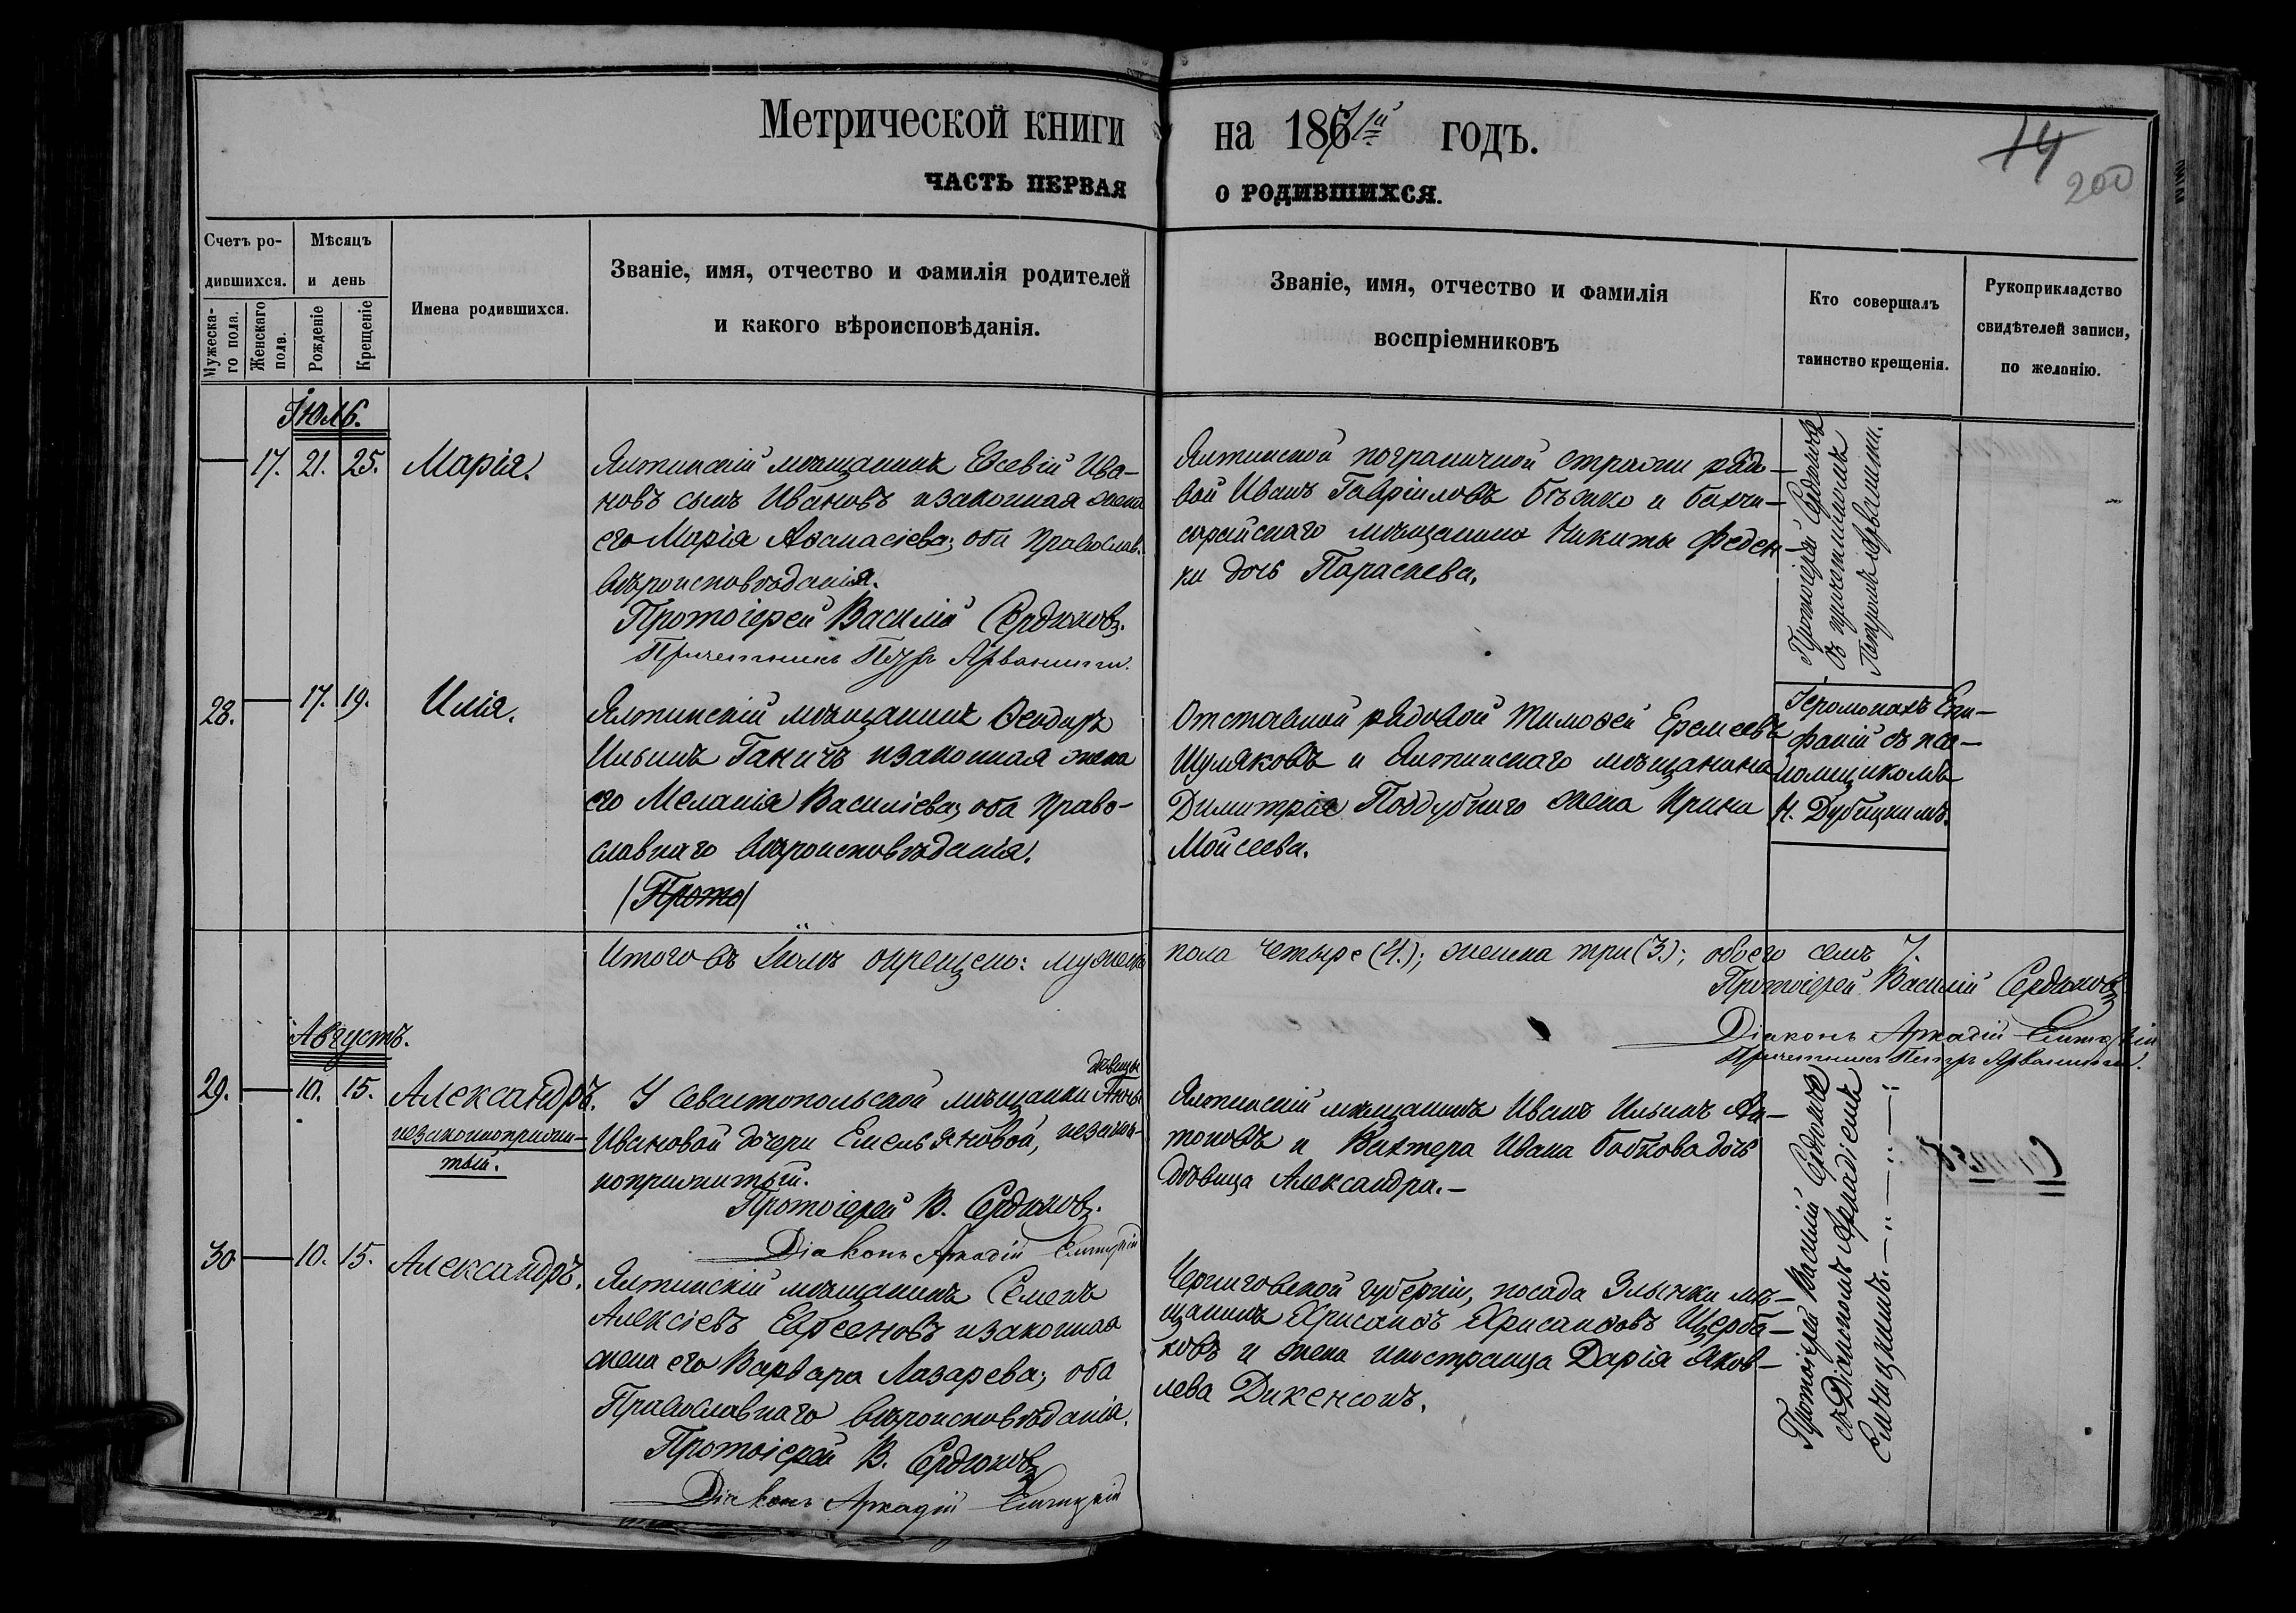 Метрической книги
на 1871й годъ.
ЧАСТЬ ПЕРВАЯ
О РОДИВШИХСЯ.
14
200
Счетъ ро-
дившихся.
Мужеска-
го пола.
Женскаго
пола.
Мѣсяцъ
и день
Рожденіе
Крещеніе
Имена родившихся.
Званіе, имя, отчество и фамилія родителей
и какого вѣроисповѣданія.
Званіе, имя, отчество и фамилія
воспріемниковъ
Кто совершалъ
таинство крещенія.
Рукоприкладство
свидѣтелей записи,
по желанію.
Іюль.
17. 21. 25. Марія.
Ялтинскій мѣщанинъ Евсевій Ива-
новъ сынъ Ивановъ изаконная жена
его Марія Аѳанасіева; оба православ.
вѣроисповѣданія.
Протоіерей Василій Сердюковъ.
Причетникъ Петръ Арванити.
Ялтинской пограничной стражи рядо-
вой Иванъ Гавріиловъ Бѣжко и бахчи-
сарайскаго мѣщанина Никиты Феден-
ки дочь Параскева.
Протоіерей Сердюковъ
съ причетникомъ
Петромъ Арванити.
28. 17. 19. Илія.
Ялтинскій мѣщанинъ Ѳеодоръ
Ильинъ Ганичъ изаконная жена
его Меланія Василіева; оба право-
славнаго вѣроисповѣданія.
(Прото)
Отставной рядовой Тимоѳей Еремеевъ
Шуляковъ и Ялтинскаго мѣщанина
Димитрія Поддубнаго жена Ирина
Мойсеева.
Іеромонахъ Епи-
фаній съ пса-
ломщикомъ
Н. Дубицкимъ.
Итого въ Іюлѣ окрещено: мужеска
пола четыре (4.); женска три (3.); обоего семь 7.
Протоіерей Василій Сердюковъ
Діаконъ Аркадій
Причетникъ Петръ Арванити.
Августъ.
29. 10. 15. Александръ.
незаконноприжи-
тый.
У Севастопольской мѣщанки дѣвицы Анны
Ивановой дочери Емельяновой, незакон-
ноприжитый.
Протоіерей В. Сердюковъ.
Діаконъ Аркадій
Ялтинскій мѣщанинъ Иванъ Ильинъ Ан-
тоновъ и Вахтера Ивана Бобкова дочь
дѣвица Александра.-
Протоіерей Василій Сердюковъ
съ Діакономъ Аркадіемъ
30 10. 15. Александръ.
Ялтинскій мѣщанинъ Семенъ
Алексіевъ Евсеновъ изаконная
жена его Варвара Лазарева; оба
Православнаго вѣроисповѣданія.
Протоіерей В. Сердюковъ
Діаконъ Аркадій
Черниговской губерніи, посада Злынки мѣ-
щанинъ Хрисанѳъ Хрисанѳовъ Щерба-
ковъ и жена иностранца Дарія Яков-
лева Дикенсонъ.